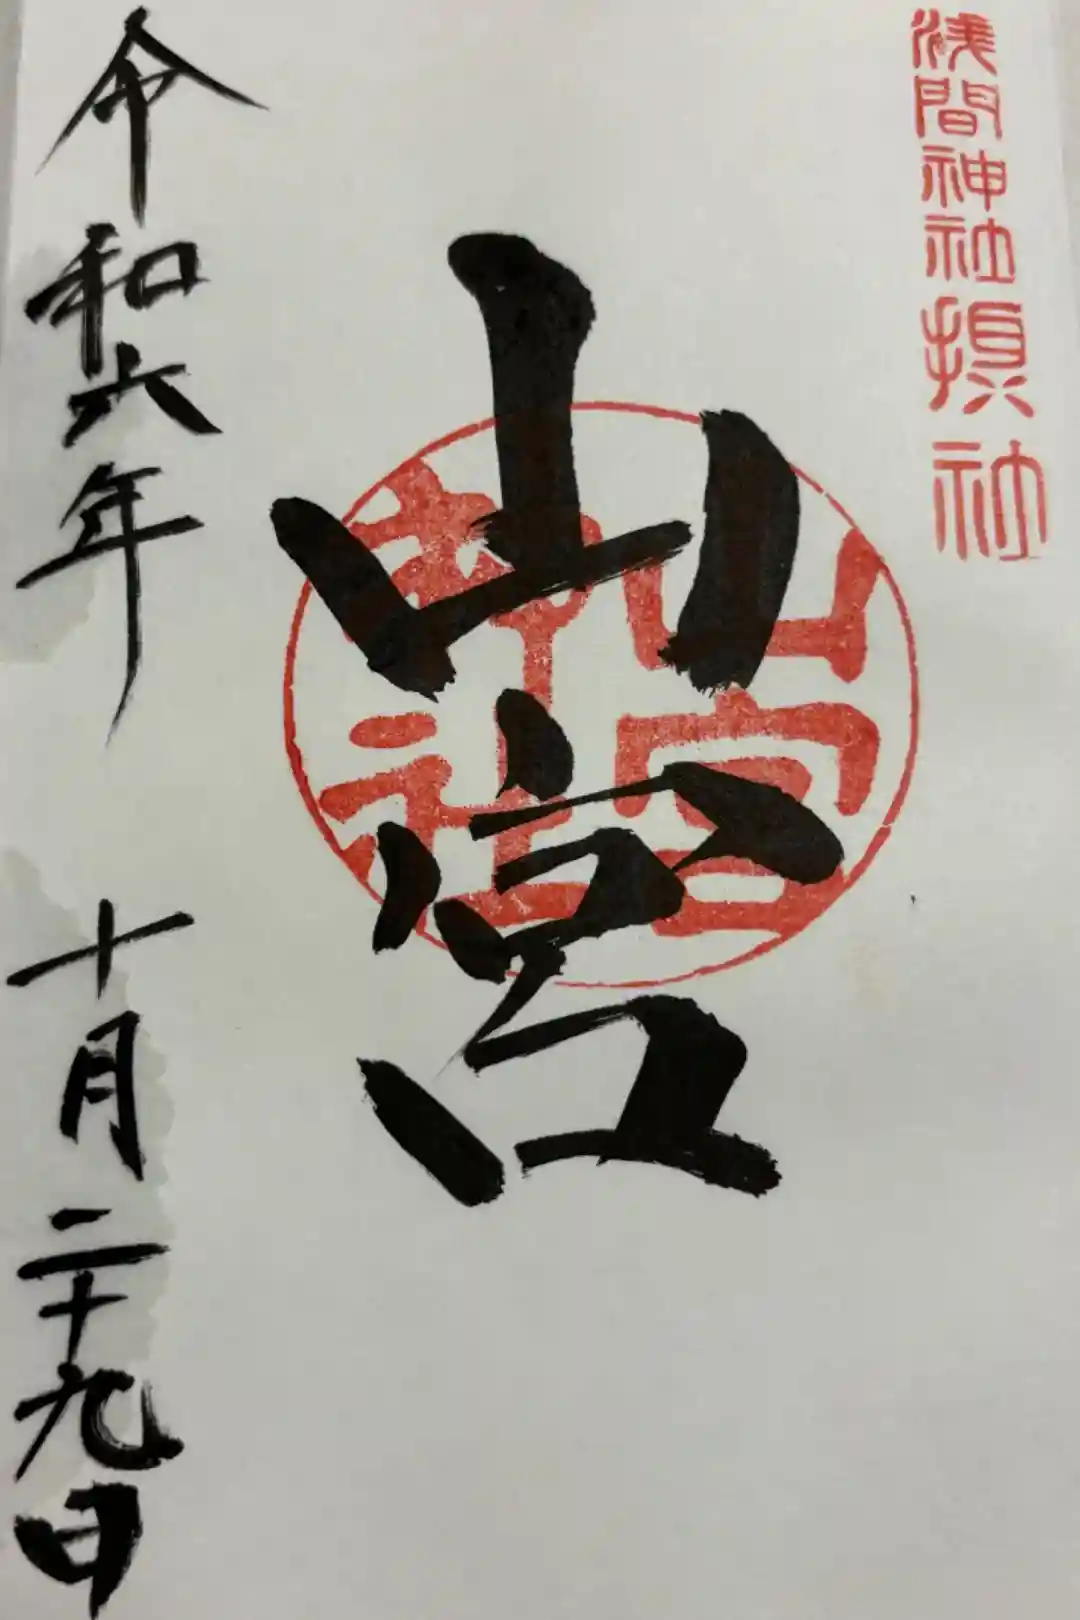 浅間神社摂社
山宮
山宮神社
令和六年 十月二十九日